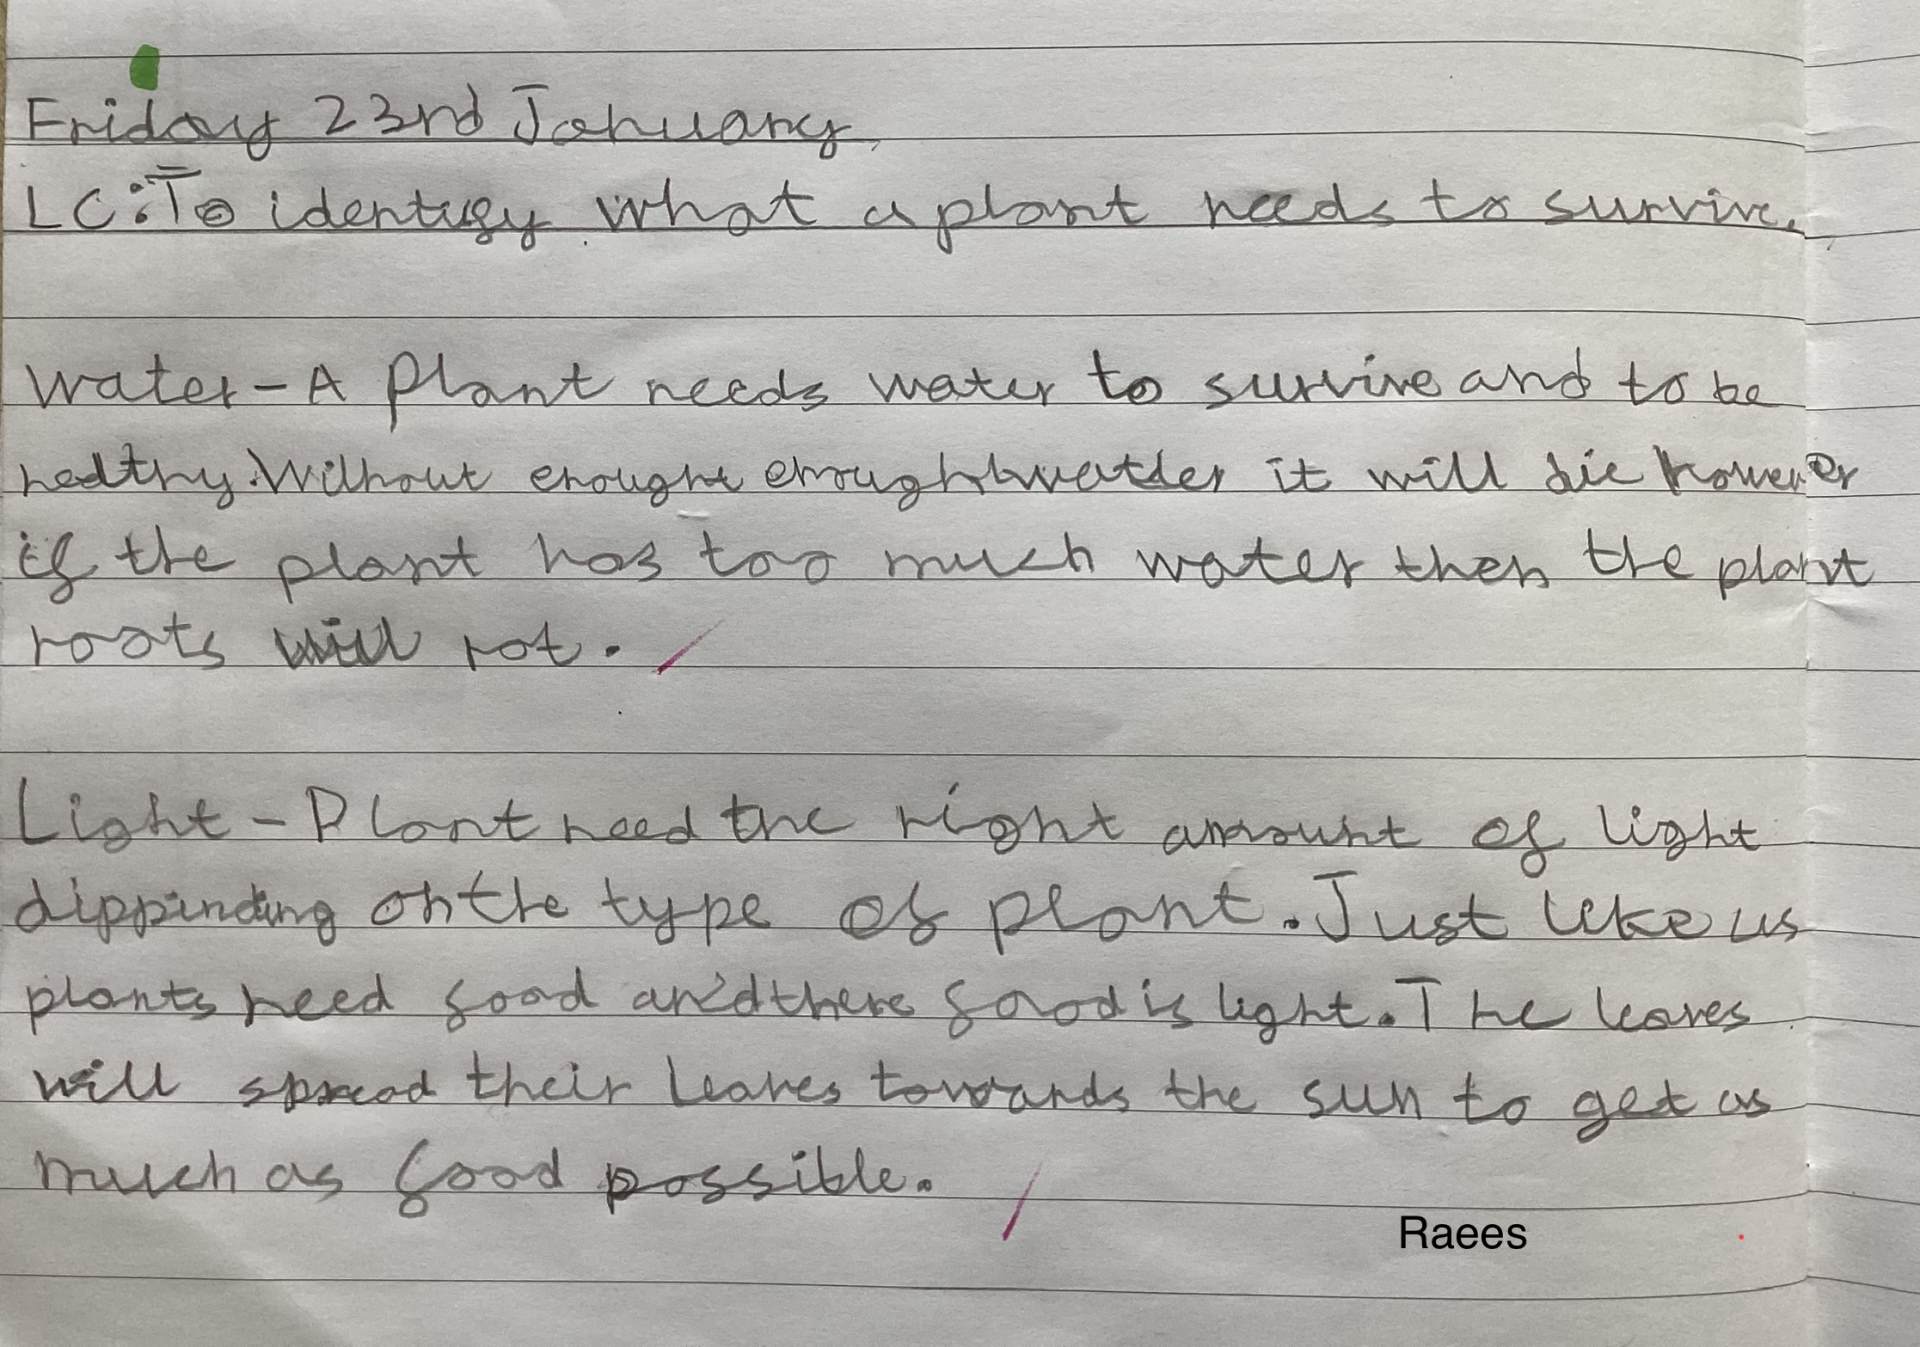 Friday 23rd January
LC: To identify what a plant needs to survive.
Water - A plant needs water to survive and to be
healthy. Without enought enough watter it will die however
if the plant has too much water then the plant
roots will rot.
Light - Plant need the right amount of light
dippinding on the type of plant. Just like us
plants need food and there food is light. The leaves
will spread their leaves towards the sun to get as
much as food possible.
Raees